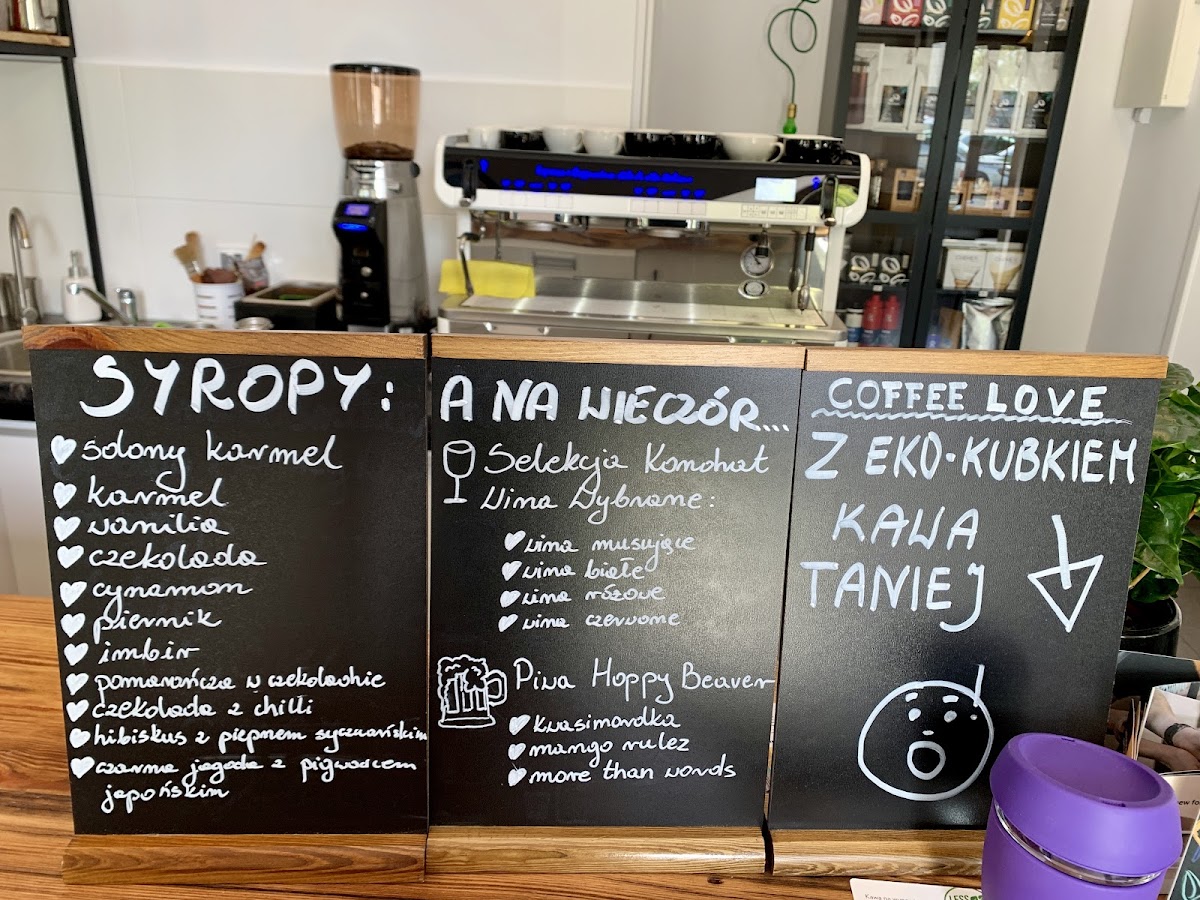 SYROPY:
solony karmel
karmel
wanilia
czekolada
cynamon
piernik
imbir
pomarańcza w czekoladzie
czekolada z chilli
hibiskus z pieprzem syczuańskim
czarna jagoda z pigwowcem
japońskim
A NA WIECZÓR...
Selekcja Konohat
Wina Wybrane:
wina musujące
wina białe
wina różowe
wina czerwone
Piwa Hoppy Beaver
kwasimordka
mango rulez
more than words
COFFEE LOVE
Z EKO-KUBKIEM
KAWA
TANIEJ